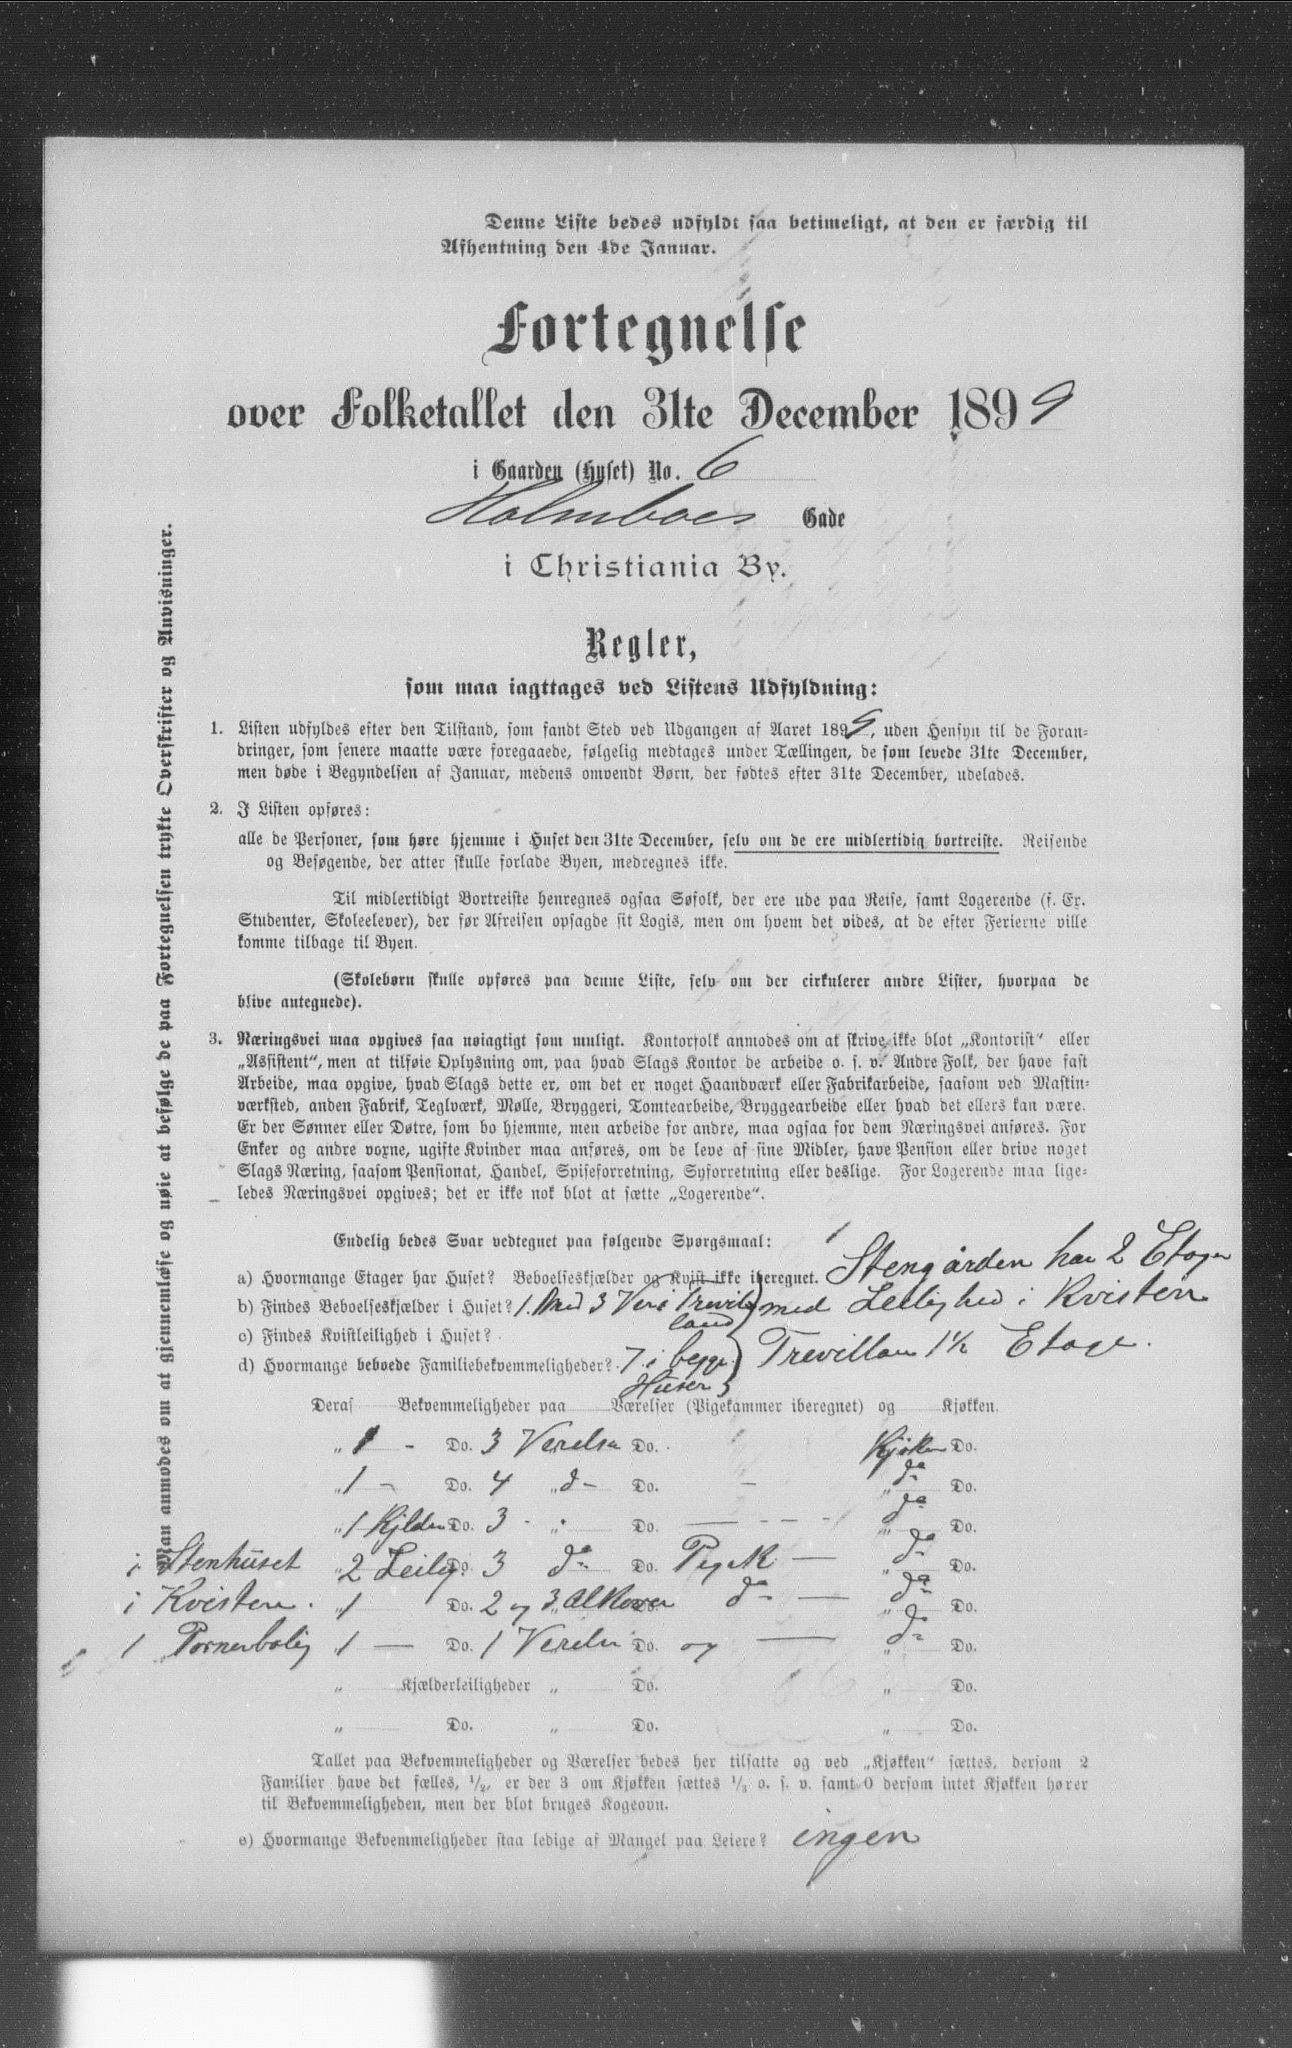 Denne Liste bedes udfyldt saa betimeligt, at den er færdig til
Afhentning den 4de Januar.
Fortegnelse
over Folketallet den 31te December 1899
i Gaarden (Huset) No. 6
Holmboes Gade
i Christiania By.
Regler,
som maa iagttages ved Listens Udfyldning:
Man anmodes om at gjennemlæse og nøie at befølge de paa Fortegnelsen trykte Overskrifter og Anvisninger.
1. Listen udfyldes efter den Tilstand, som fandt Sted ved Udgangen af Aaret 1899, uden Hensyn til de Foran-
dringer, som senere maatte være foregaaede, følgelig medtages under Tællingen, de som levede 31te December,
men døde i Begyndelsen af Januar, medens omvendt Børn, der fødtes efter 31te December, udelades.
2. I Listen opføres:
alle de Personer, som høre hjemme i Huset den 31te December, selv om de ere midlertidig bortreiste. Reisende
og Besøgende, der atter skulle forlade Byen, medregnes ikke.
Til midlertidigt Bortreiste henregnes ogsaa Søfolk, der ere ude paa Reise, samt Logerende (f. Ex.
Studenter, Skoleelever), der før Afreisen opsagde sit Logis, men om hvem det vides, at de efter Ferierne ville
komme tilbage til Byen.
(Skolebørn skulle opføres paa denne Liste, selv om der cirkulerer andre Lister, hvorpaa de
blive antegnede).
3. Næringsvei maa opgives saa nøiagtigt som muligt. Kontorfolk anmodes om at skrive ikke blot „Kontorist“ eller
„Assistent“, men at tilføie Oplysning om, paa hvad Slags Kontor de arbeide o. s. v. Andre Folk, der have fast
Arbeide, maa opgive, hvad Slags dette er, om det er noget Haandværk eller Fabrikarbeide, saasom ved Maskin-
værksted, anden Fabrik, Teglværk, Mølle, Bryggeri, Tomtearbeide, Bryggearbeide eller hvad det ellers kan være.
Er der Sønner eller Døtre, som bo hjemme, men arbeide for andre, maa ogsaa for dem Næringsvei anføres. For
Enker og andre voxne, ugifte Kvinder maa anføres, om de leve af sine Midler, have Pension eller drive noget
Slags Næring, saasom Pensionat, Handel, Spiseforretning, Syforretning eller deslige. For Logerende maa lige-
ledes Næringsvei opgives; det er ikke nok blot at sætte „Logerende“.
Endelig bedes Svar vedtegnet paa følgende Spørgsmaal:
a) Hvormange Etager har Huset? Beboelseskjælder og Kvist ikke iberegnet. Stengården har 2 Etager
b) Findes Beboelseskjælder i Huset? 1. med 3 Ver i Trevil- med Leilighed i Kvisten
c) Findes Kvistleilighed i Huset?
d) Hvormange beboede Familiebekvemmeligheder? 7 i begge Trevillaen 1½ Etage.
Huser
Deraf Bekvemmeligheder paa Værelser (Pigekammer iberegnet) og Kjøkken.
„ 1 - Do. 3 Verelse Do. Kjøken Do.
„ 1 - Do. 4 „ d- Do. - „ do Do.
„ 1 Kjlder Do. 3 - „ Do. - „ do Do.
i Stenhuset „ 2 Leilig Do. 3 do Do. Pigek - „ do Do.
i Kvisten. „ 1 Do. 2 og 3 Alkover Do. do - „ do Do.
1 Portnerbolig 1 - Do. 1 Verelse Do. og - „ do Do.
„ Kjælderleiligheder „ Do. „ Do.
„ Do. „ Do. „ Do.
Tallet paa Bekvemmeligheder og Værelser bedes her tilsatte og ved „Kjøkken“ sættes, dersom 2
Familier have det fælles, 1/2, er der 3 om Kjøkken sættes 1/3 o. s. v. samt 0 dersom intet Kjøkken hører
til Bekvemmeligheden, men der blot bruges Kogeovn.
e) Hvormange Bekvemmeligheder staa ledige af Mangel paa Leiere? ingen